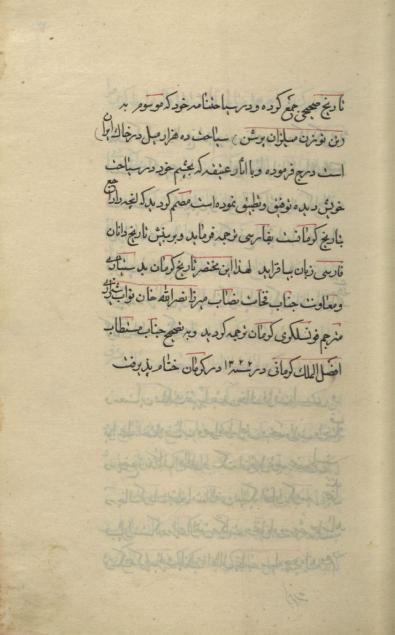 تاریخ صحیحی جمع کرده و در سیاحتنامه خود که موسوم به
(تن توزن میلزان پرشن) سیاحت ده هزار میل در خاک ایران)
است درج فرموده و با آثار عتیقه که بچشم خود در سیاحت
خویش دیده توفیق و تطبیق نموده است مصمم گردید که آنچه راجع
بتاریخ کرمانست بفارسی ترجمه فرماید و بر بینش تاریخ دانان
فارسی زبان بیافزاید لهذا این مختصر تاریخ کرمان بدستیاری
و معاونت جناب فخامت نصاب میرزا نصرالله خان نواب شیرازی
مترجم قونسلگری کرمان ترجمه گردید و به تصحیح جناب مستطاب
افضل الملک کرمانی در ۱۳۲۲ در کرمان ختام پذیرفت